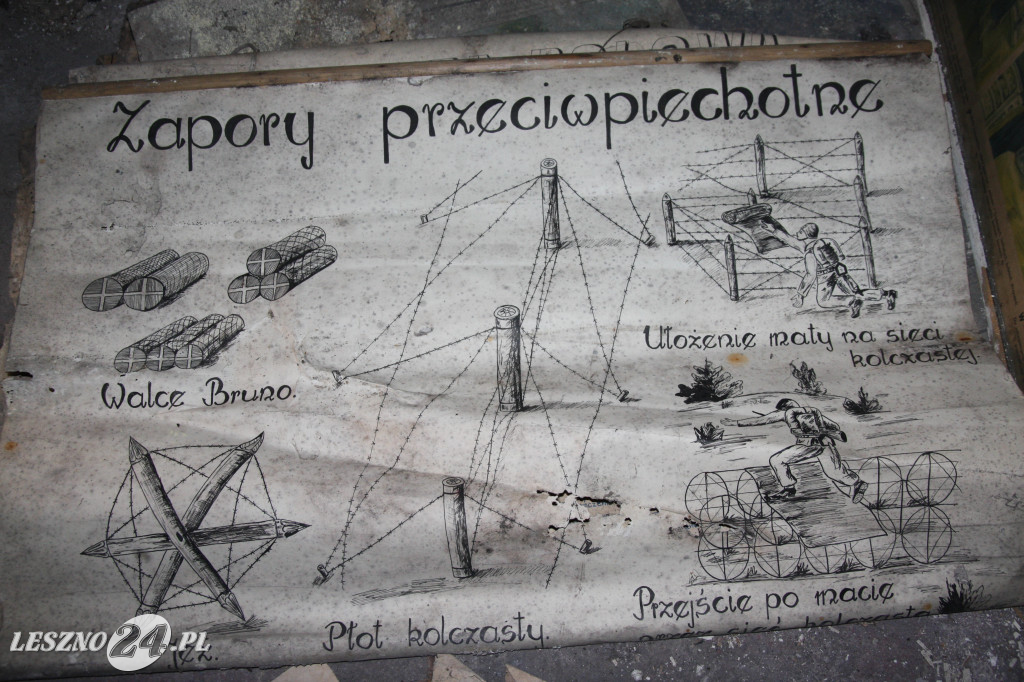 Zapory przeciwpiechotne
Walce Bruno.
Ułożenie maty na sieci
kolczastej.
Płot kolczasty.
Przejście po macie
LESZNO24.PL